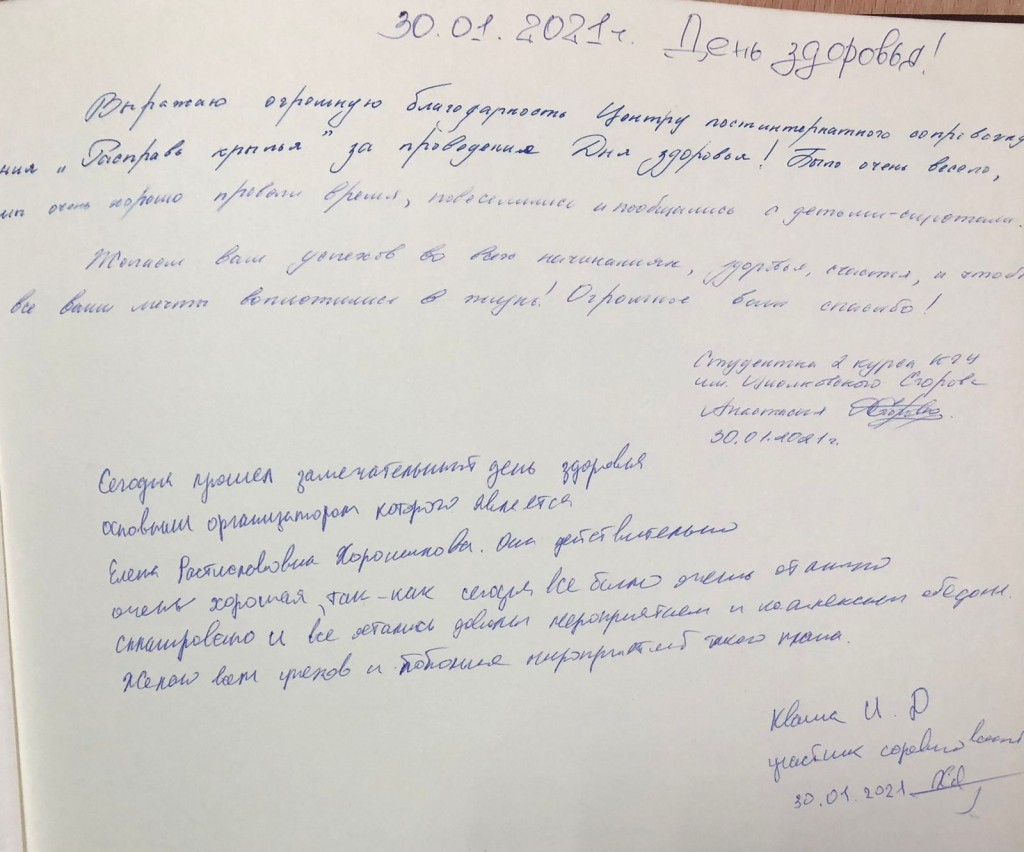 30.01.2021г. День здоровья!
Выражаю огромную благодарность Центру постинтернатного сопровожде
ния „Расправь крылья" за проведение Дня здоровья! Было очень весело,
мы очень хорошо провели время, повеселились и пообщались с детьми-сиротами.
Желаем вам успехов во всех начинаниях, здоровья, счастья, и чтобы
все ваши мечты воплотились в жизнь! Огромное вам спасибо!
Студентка 2 курса КГУ
им. Циолковского Егорова
Анастасия
30.01.2021г.
Сегодня прошел замечательный день здоровья
основным организатором которого является
Елена Хорошилова. Она действительно
очень хорошая, так-как сегодня все было очень отлично
спланировано и все остались довольны мероприятием и комплексным обедом.
Желаю вам успехов и побольше мироприятий такого плана.
Кваша И. Д
участник соревнований
30.01.2021